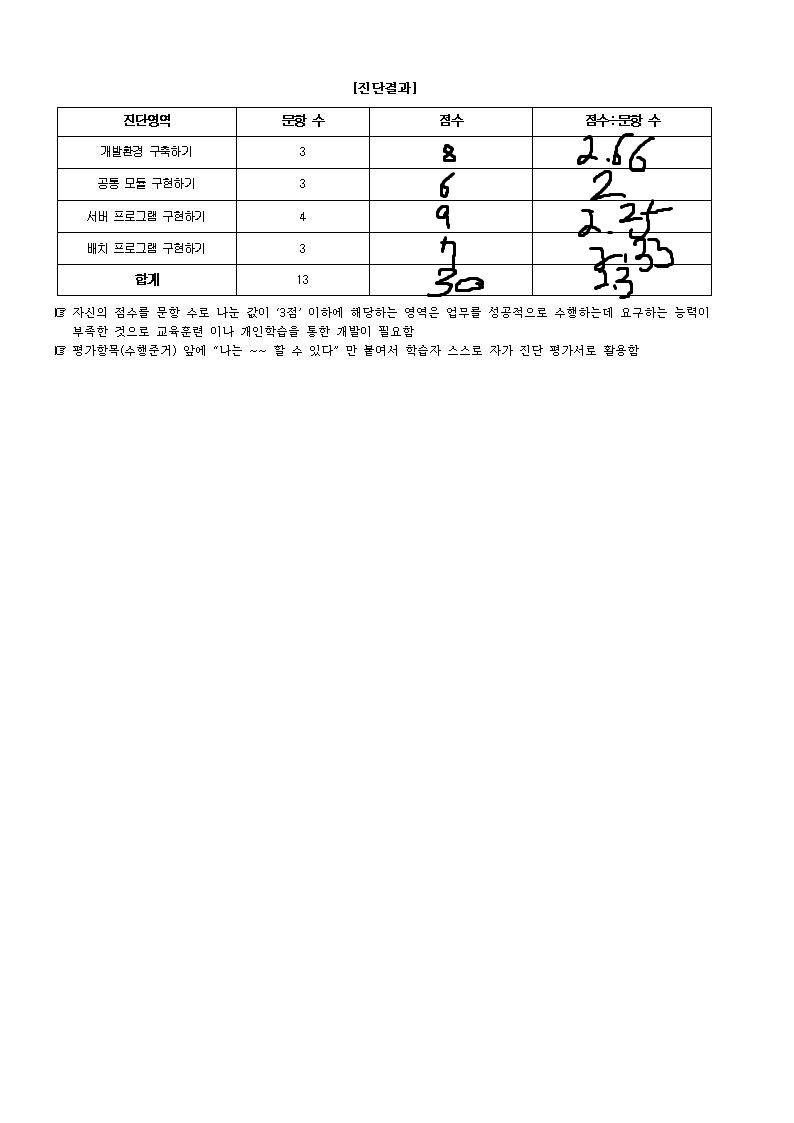 [진단결과]
진단영역 문항 수 점수 점수÷문항 수
개발환경 구축하기 3 8 2.66
공통 모듈 구현하기 3 6 2
서버 프로그램 구현하기 4 9 2.25
배치 프로그램 구현하기 3 7 2.33
합계 13 30 2.3
☞ 자신의 점수를 문항 수로 나눈 값이 ‘3점’ 이하에 해당하는 영역은 업무를 성공적으로 수행하는데 요구하는 능력이
부족한 것으로 교육훈련 이나 개인학습을 통한 개발이 필요함
☞ 평가항목(수행준거) 앞에 “나는 ~~ 할 수 있다” 만 붙여서 학습자 스스로 자가 진단 평가서로 활용함